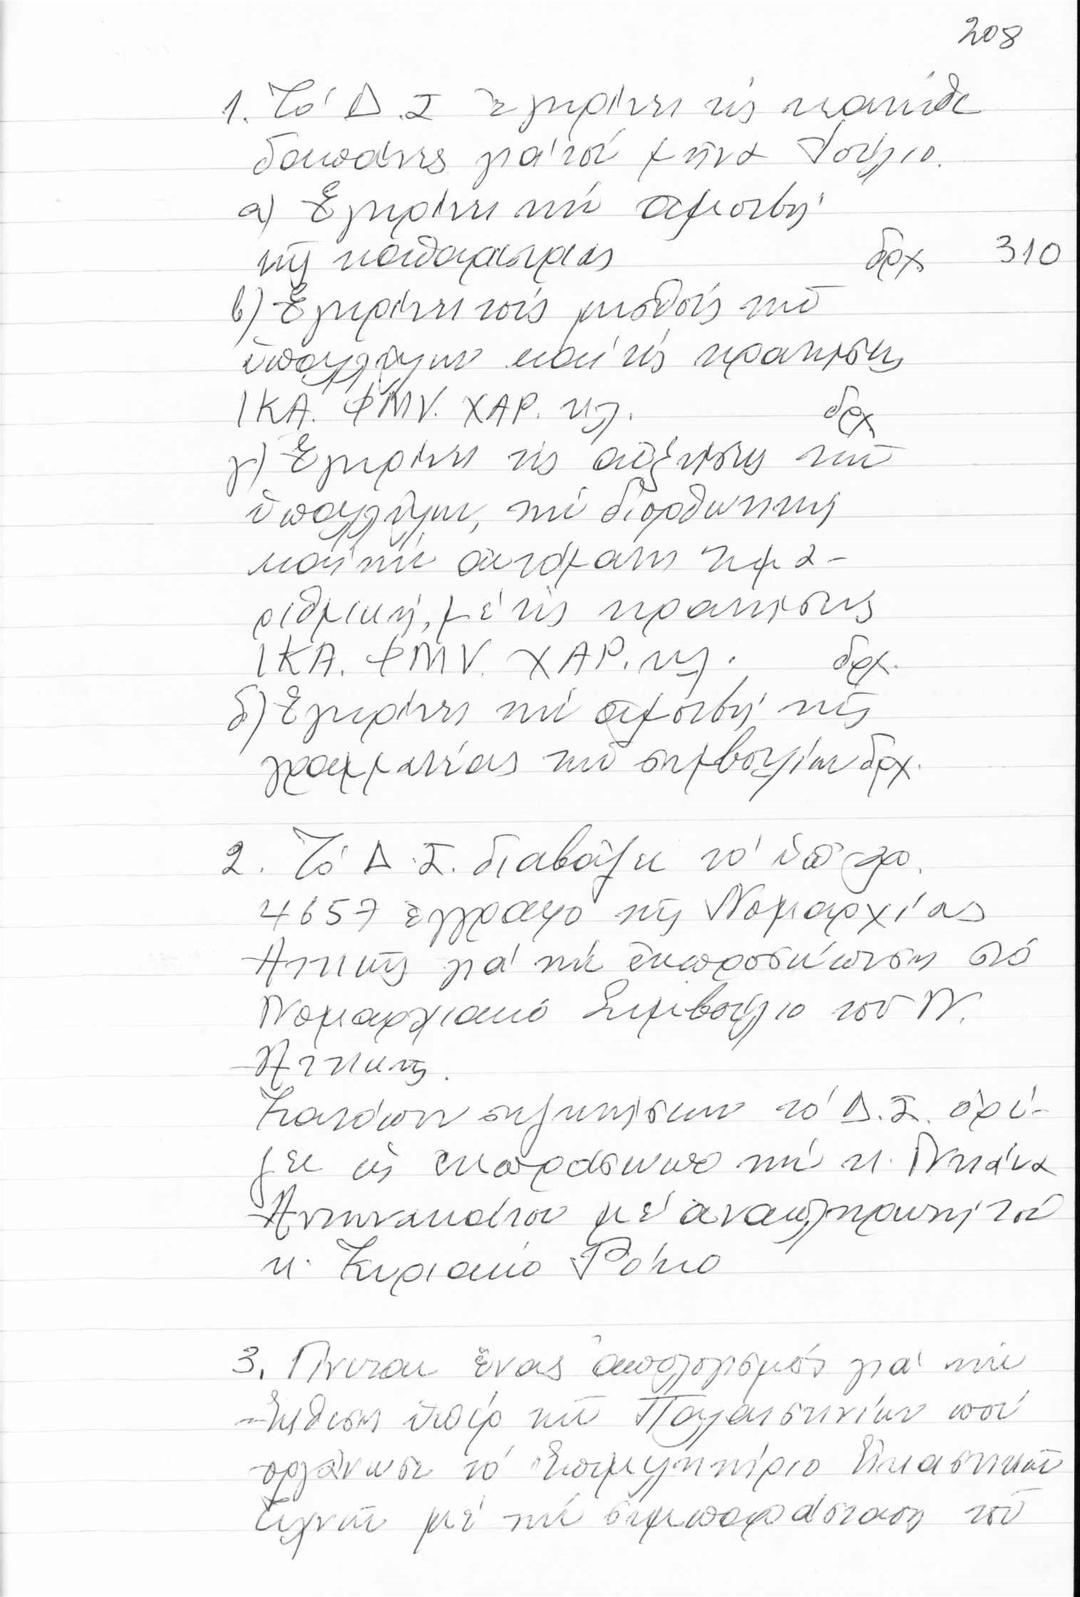 208
1. Τό Δ.Σ ἐγκρίνει τίς παρακάτω
δαπάνες γιά τό μῆνα Ἰούλιο.
α) Ἐγκρίνει τήν ἀμοιβή
τῆς καθαρίστριας δρχ 310
β) Ἐγκρίνει τούς μισθούς τῶν
ὑπαλλήλων καί τίς κρατήσεις
ΙΚΑ. ΦΜΥ. ΧΑΡ. κλ. δρχ
γ) Ἐγκρίνει τίς αὐξήσεις τῶν
ὑπαλλήλων, τήν διορθωτική
καί τήν αὐτόματη τιμα-
ριθμική, μέ τίς κρατήσεις
ΙΚΑ. ΦΜΥ. ΧΑΡ. κλ. δρχ.
δ) Ἐγκρίνει τήν ἀμοιβή τῆς
γραμματέας τῶν συμβουλίων δρχ.
2. Τό Δ.Σ. διαβάζει τό ὑπ' ἀρ.
4657 ἔγγραφο τῆς Νομαρχίας
Ἀττικῆς γιά τήν ἐκπροσώπηση στό
Νομαρχιακό Συμβούλιο τοῦ Ν.
Ἀττικῆς.
Κατόπιν συζητήσεων τό Δ.Σ. ὁρί-
ζει ὡς ἐκπρόσωπο τήν κ.
μέ ἀναπληρωτή τόν
κ. Κυριάκο Ρόκο
3. Γίνεται ἕνας ἀπολογισμός γιά τήν
Ἔκθεση ὑπέρ τῶν Παλαιστινίων πού
ὀργάνωσε τό Ἐπιμελητήριο Εἰκαστικῶν
Τεχνῶν μέ τήν συμπαράσταση τοῦ